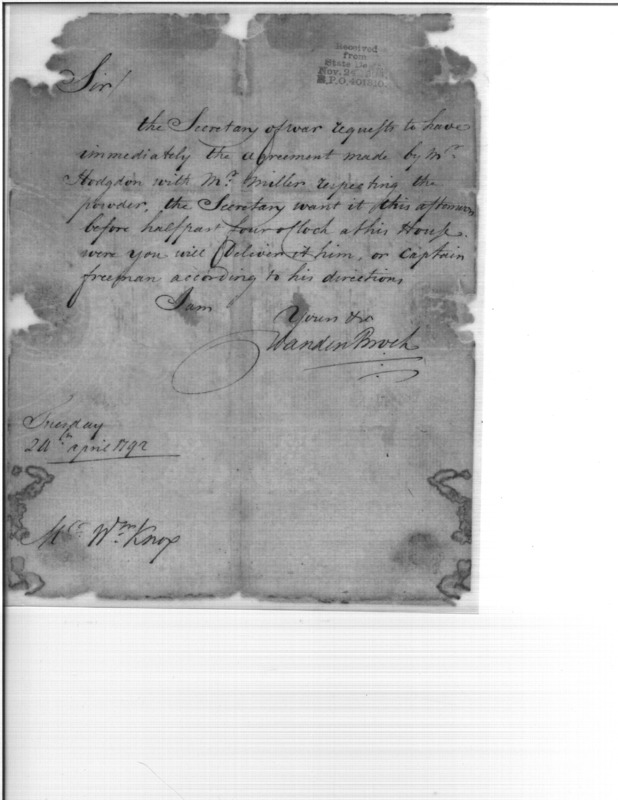 Received
from
State
Nov. 24
Sir!
the Secretary of war requests to have
immediately the agreement made by Mr.
Hodgdon with Mr. Miller respecting the
powder, the Secretary want it this afternoon
before halfpast four oClock at his House.
were you will Deliver it him, or Captain
freeman according to his directions
I am
Yours &c
VandenBroek
Tuesday
24th april 1792
Wm Knox